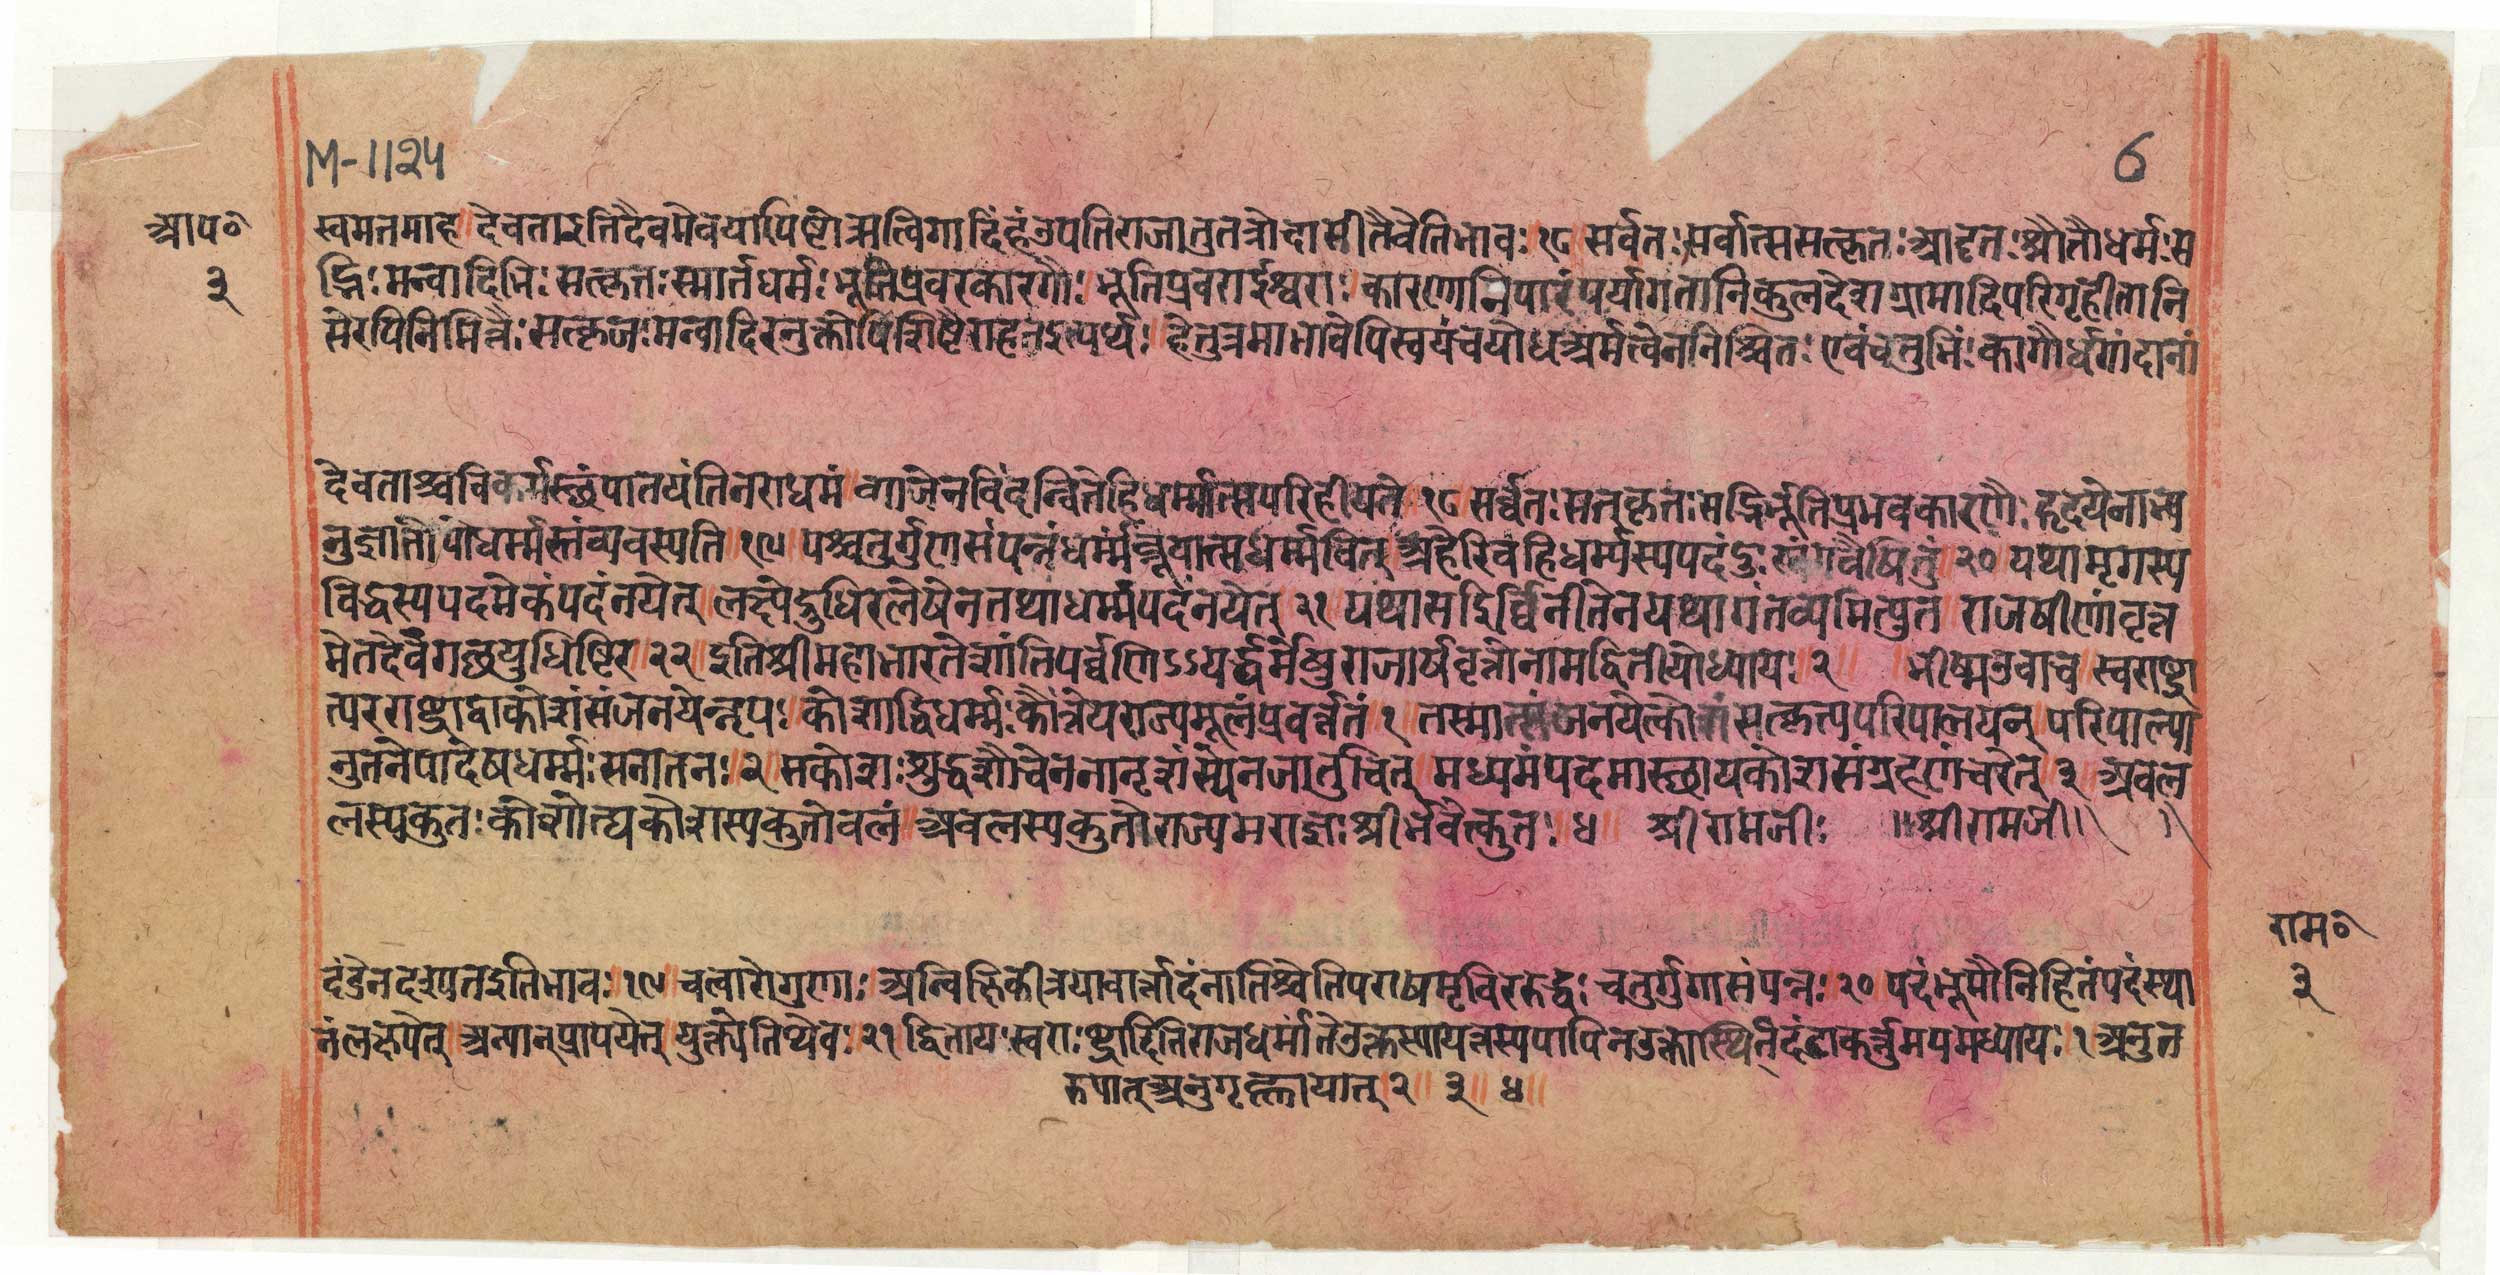 M-1124
6
आप०
३
स्वमतमाह ॥ देवताइति दैवमेवपापिष्टोऋत्विगादिंहंउपतिराजातुतत्रोदासीतैवेतिभावः ॥ १८ ॥ सर्वतः सर्वात्ससत्कृतः आदृतः श्रौतोधर्मः स
द्भिः मन्वादिभिः सत्कृतः स्मार्तधर्मः भूतिप्रवरकारणैः भूतिप्रवराईश्वराः कारणानिपारंपर्यागतानिकुलदेशग्रामादिपरिगृहीतानि
सेरपिनिमित्तैः सत्कृतः मन्वादिरनुक्तोपिशिष्टैरादृतइत्यर्थः ॥ हेतुत्रमाभावेपिस्वयंचयोधर्मत्वेननिश्चितः एवंचतुर्भिः
देवताश्चविकर्मस्छंपातयंतिनराधमं ॥ व्याजेनविंदन्वित्तंहिधर्म्मात्सपरिहीयते ॥ १८ ॥ सर्व्वतः सत्कृतः सद्भिर्भूतिप्रभवकारणैः हृदयेनाभ्य
नुज्ञातोयोधर्म्मस्तंव्यवस्यति ॥ १९ ॥ यश्चतुर्गुणसंपन्नंधर्म्मंब्रूयात्सधर्म्मवित् ॥ अहेरिवहिधर्म्मस्यपदंदुःखंगवेषितुं ॥ २० ॥ यथामृगस्य
विद्धस्यपदमेकंपदंनयेत् ॥ लक्ष्येद्रुधिरलेषेनतथाधर्म्मपदंनयेत् ॥ २१ ॥ यथासद्भिर्विनीतेनयथागंतव्यमित्युत ॥ राजर्षीणांवृत्त
मेतदेवंगछयुधिष्टिर ॥ २२ ॥ इतिश्रीमहाभारतेशांतिपर्व्वणिऽऽपद्धर्मेषुराजार्षवृत्तोनामद्वितीयोध्यायः ॥ २ ॥ भीष्मउवाच ॥ स्वराष्ट्रा
त्परराष्ट्राद्वाकोशंसंजनयेन्नृपः ॥ कोशाद्धिधर्म्मः कौंतेयराज्यमूलंप्रवर्त्ततं ॥ १ ॥ तस्मात्संजनयेत्कोशंसत्कृत्यपरिपालयेत् ॥ परिपाल्या
नुतनेयादेषधर्म्मः सनातनः ॥ २ ॥ नकोशः शुद्धशौचेननानृशंस्येनजातुचित् ॥ मध्यमंपदमास्छायकोशसंग्रहणंचरेत् ॥ ३ ॥ अबल
लस्यकुतः कोशोत्द्यकोशस्यकुतोबलं ॥ अबलस्यकुतोराज्यमराज्ञः श्रीर्भवेत्कुतः ॥ ४ ॥ श्रीरामजीः ॥ श्रीरामजी ॥
राम०
३
दंडेन इतिभावः ॥ १९ ॥ चत्वारोगुणाः चतुर्गुणसंपन्नः ॥ २० ॥ पदंभूमौनिहितंपदंस्या
नंलक्षयेत् ॥ अन्यान्प्रापयेत् २१ इतिराजधर्मांते मध्यायः ॥ १ ॥ अनुत
अनुगृह्णीयात् ॥ २ ॥ ३ ॥ ४ ॥